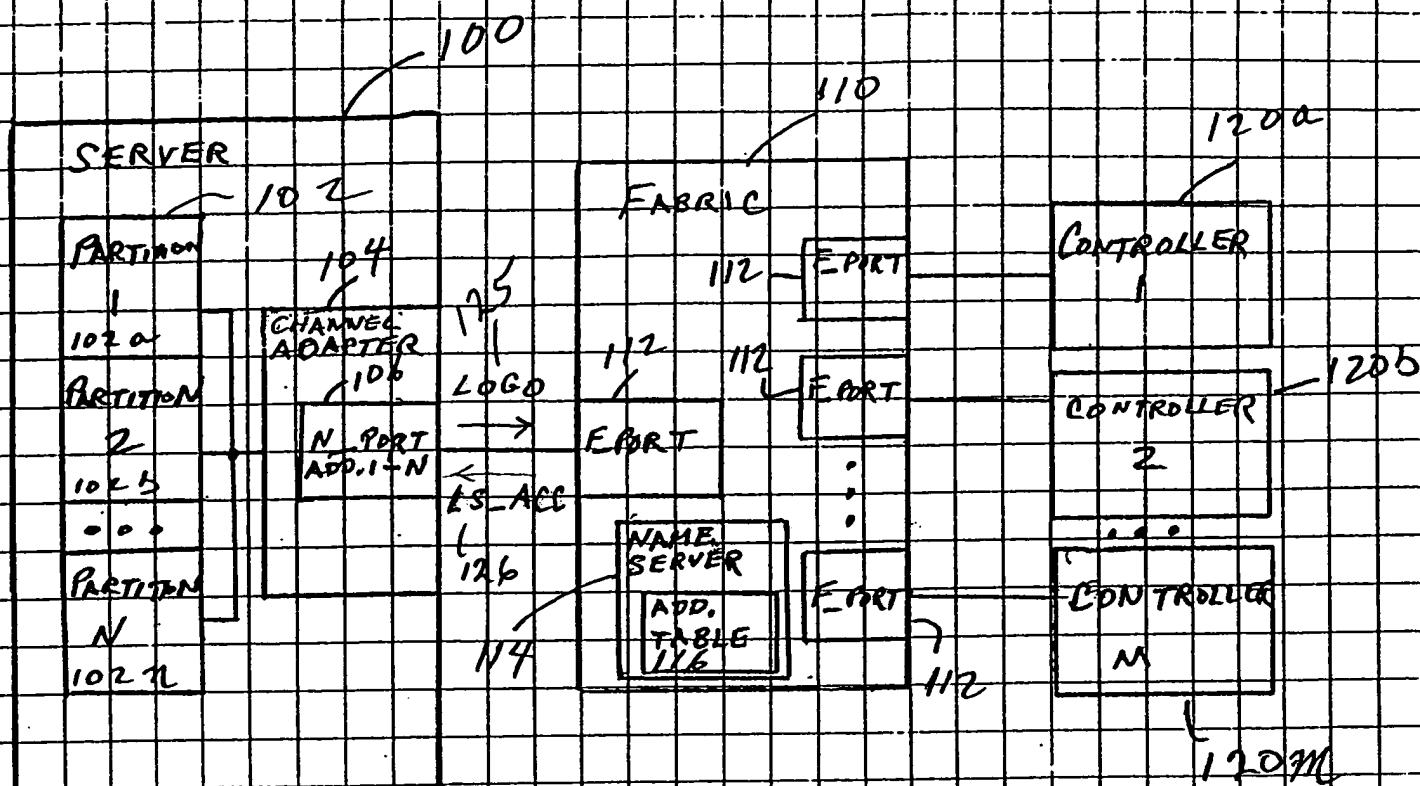 100
SERVER
102
PARTITION
1
102a
PARTITION
2
102b
• • •
PARTITION
N
102n
104
CHANNEL
ADAPTER
106
N_PORT
ADD.1-N
125
LOGO
LS_ACC
126
110
FABRIC
112
F_PORT
112
F_PORT
112
F_PORT
F_PORT
112
NAME
SERVER
ADD.
TABLE
116
114
120a
CONTROLLER
1
120b
CONTROLLER
2
• • •
CONTROLLER
M
120m